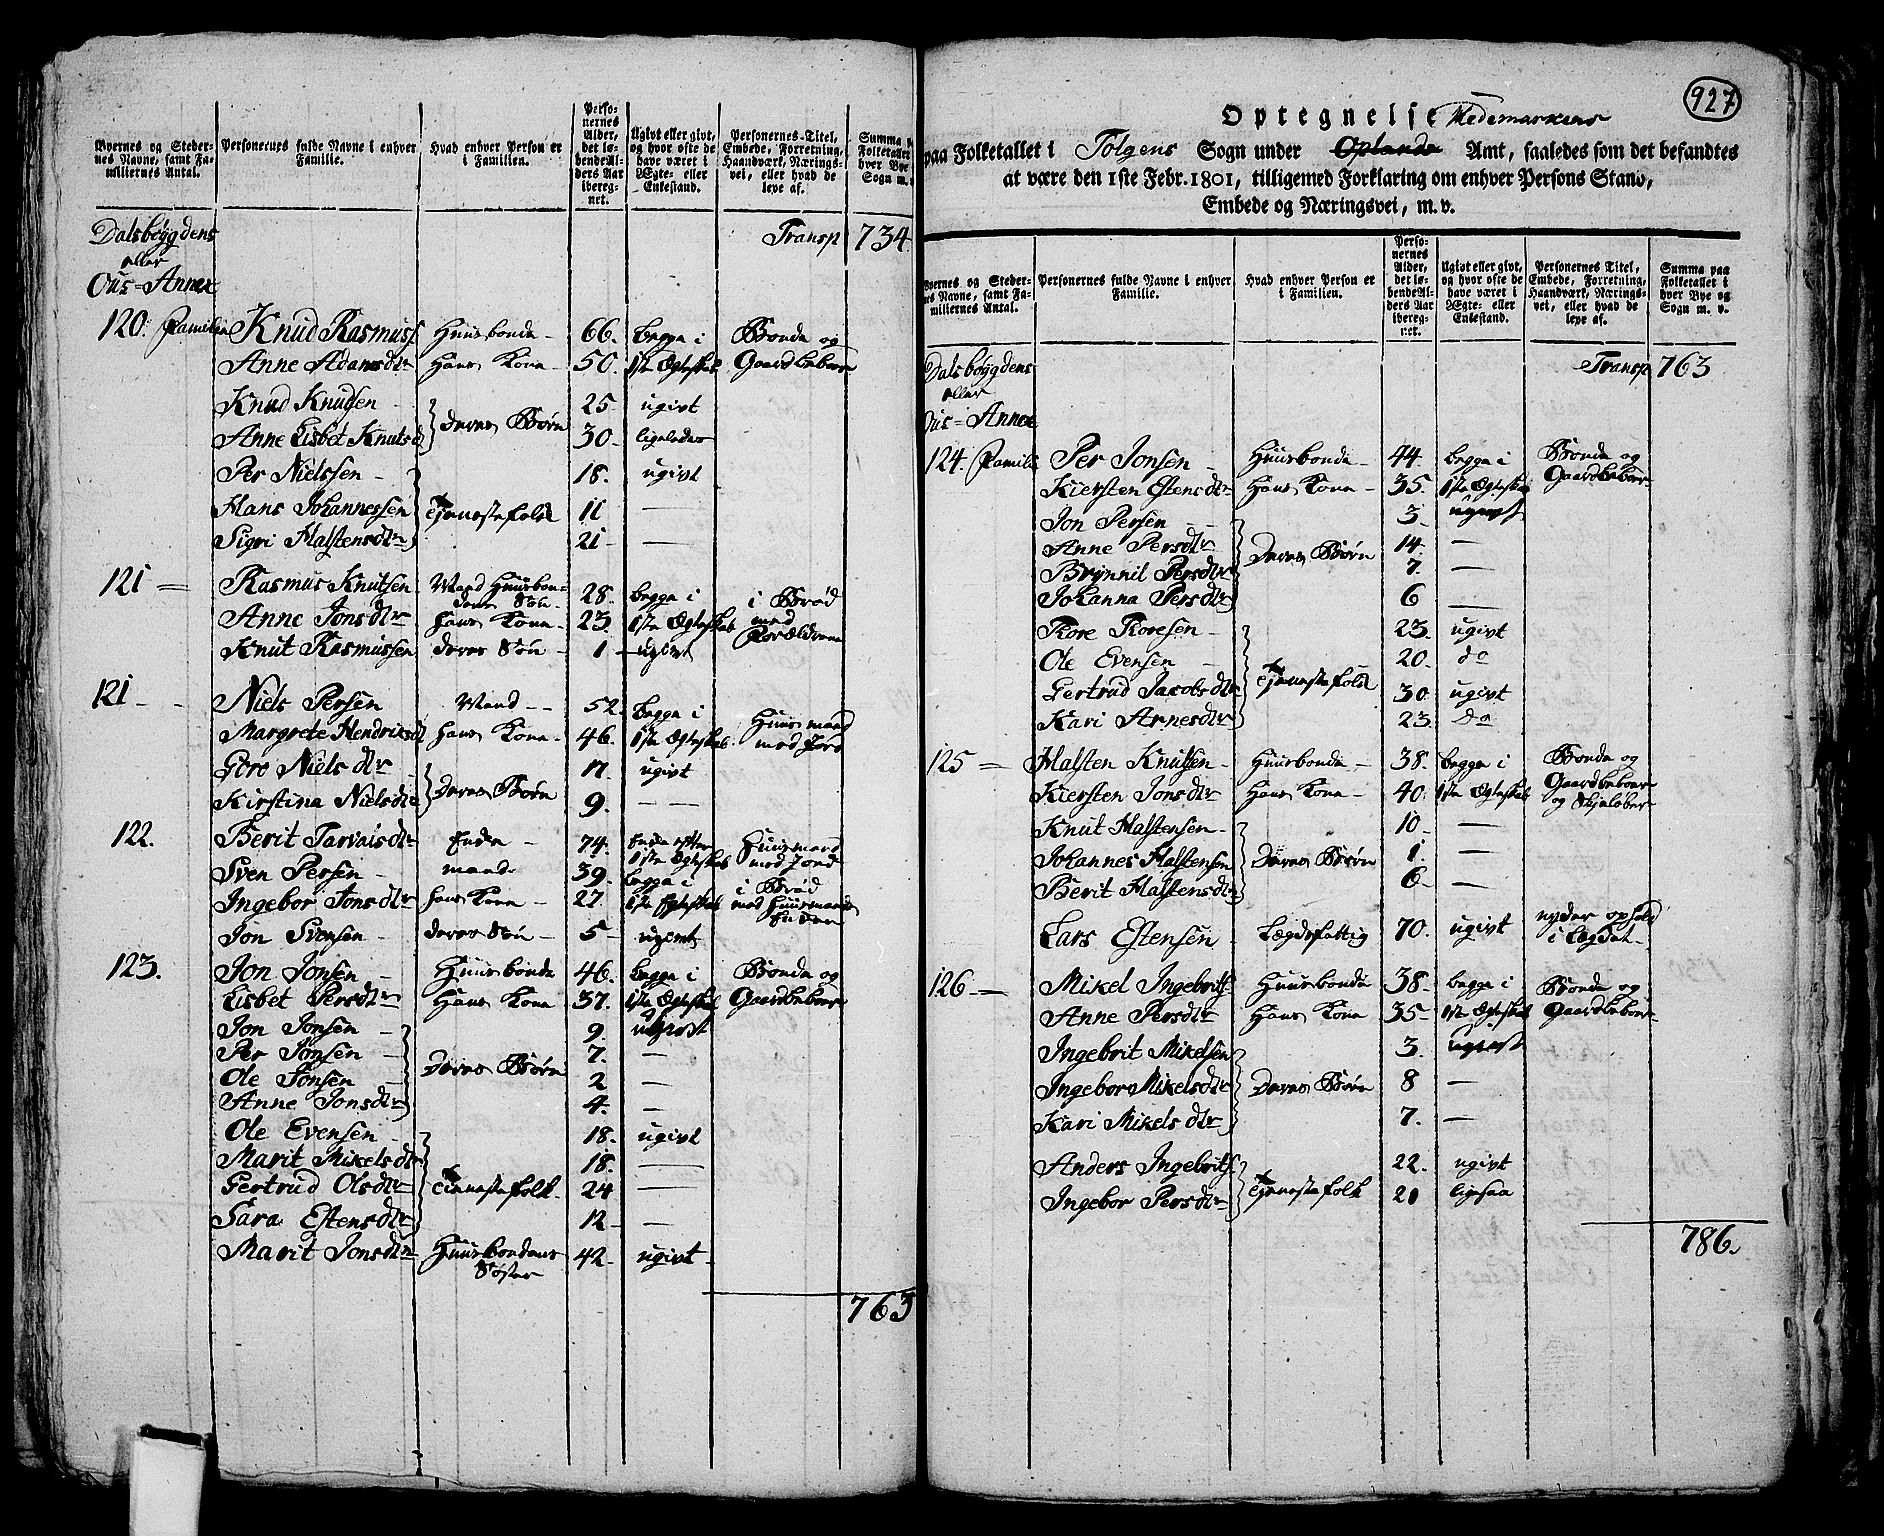 Byernes og Steder-
nes Navne, samt Fa-
miliernes Antal.
Personernes fulde Navne i enhver
Familie.
Hvad enhver Person er
i Familien.
Perso-
nernes
Alder,
det lø-
bende Al-
ders Aar
ibereg-
net.
Ugivt eller givt,
og hvor ofte de
have været i
Ægte- eller
Enkestand.
Personernes Titel,
Embede, Forretning,
Haandværk, Nærings-
vei, eller hvad de
leve af.
Summa paa
Folketallet
hver Bye
Sogn m.
Dalsbøygdens
eller
Ous=Annex
Transp 734.
120. Familie Knud Rasmuss Huusbonde 66. begge i Bonde og
Anne Adamsdtr Hans Kone 50. 1ste Ægteskab Gaardbeboer
Knud Knutsen 25 ugivt
Anne Lisbet Knutsd deres Børn 30 ligeledes
Per Nielssen 18. ugivt
Hans Johannessen Tjenestefolk 11 —
Sigri Halstensdtr 21 —
121 = Rasmus Knutsen Mand Huusbon=
dens Søn 28. begge i i Brød
Anne Jonsdtr Hans Kone 23. 1ste Ægteskab med
Forældrene
Knut Rasmussen deres Søn 1 ugivt
121 - - Niels Persen Mand 52. begge i Huusmand
Margrete Hendriksd Hans Kone 46. 1ste Ægteskab med Jord
Goro Nielsdtr 17. ugivt
Kirstina Nielsdtr Deres Børn 9. —
122. Berit Tarvaisdtr Enke 74. Enke efter
1ste Ægteskab Huusmand
med Jord
Sven Persen mand 39. begge i i Brød
Ingebor Jonsdtr Hans Kone 27. 1ste Ægteskab med Huusmands
Enken
Jon Svensen deres Søn 5 ugivt
123. Jon Jonsen Huusbonde 46. begge i Bonde og
Lisbet Persdtr Hans Kone 37. 1ste Ægteskab Gaardbeboer
Jon Jonsen 9. ugivt
Per Jonsen 7. —
Ole Jonsen Deres Børn 2 —
Anne Jonsdtr 4. —
Ole Evensen 18. ugivt
Marit Mikelsdtr 18. —
Gertrud Olsdtr Tienestefolk. 24 —
Sara Estensdtr 12 —
Marit Jonsdtr Huusbondens
Søster 42. ugivt
763
927
Optegnelse Hedemarkens
paa Folketallet i Tolgens Sogn under Oplands Amt, saaledes som det befandtes
at være den 1ste Febr. 1801, tilligemed Forklaring om enhver Persons Stand,
Embede og Næringsvei, m. v.
Byernes og Steder-
nes Navne, samt Fa-
miliernes Antal.
Personernes fulde Navne i enhver
Familie.
Hvad enhver Person er
i Familien.
Perso-
nernes
Alder,
det lø-
bende Al-
ders Aar
ibereg-
net.
Ugivt eller givt,
og hvor ofte de
have været i
Ægte- eller
Enkestand.
Personernes Titel,
Embede, Forretning,
Haandværk, Nærings-
vei, eller hvad de
leve af.
Summa paa
Folketallet i
hver Bye og
Sogn m. v.
Dalsbøygdens
eller
Ous=Annex
Transp 763
124. Famili Per Jonsen Huusbonde 44. begge i Bonde og
Kiersten Estensdtr Hans Kone 35. 1ste Ægteskab Gaardbeboer
Jon Persen 3. ugivt
Anne Persdtr 14. —
Brynnil Persdtr Deres Børn 7. —
Johanna Persdtr 6 —
Tore Toresen 23. ugivt
Ole Evensen 20. do
Gertrud Jacobsdtr Tjenestefolk 30. ugivt
Kari Arnesdtr 23. do
125 = Halsten Knutsen Huusbonde 38. begge i Bonde og
Kiersten Jonsdtr Hans Kone 40. 1ste Ægteskab Gaardbeboer
og Skieløber
Knut Halstensen 10 —
Johannes Halstensen Deres Børn 1. —
Berit Halstensdtr 6 —
Lars Estensen Lægdsfattig 70. ugivt nyder ophold
i Lægdet
126 = Mikel Ingebrits Huusbonde 38. begge i Bonde og
Anne Persdtr Hans Kone 35 1ste Ægteskab Gaardbeboer
Ingebrit Mikelsen 3. ugivt
Ingebor Mikelsdtr Deres Børn 8 —
Kari Mikelsdtr 7. —
Anders Ingebrits 22. ugivt
Ingebor Persdtr Tjenestefolk 21 ligesaa
786.